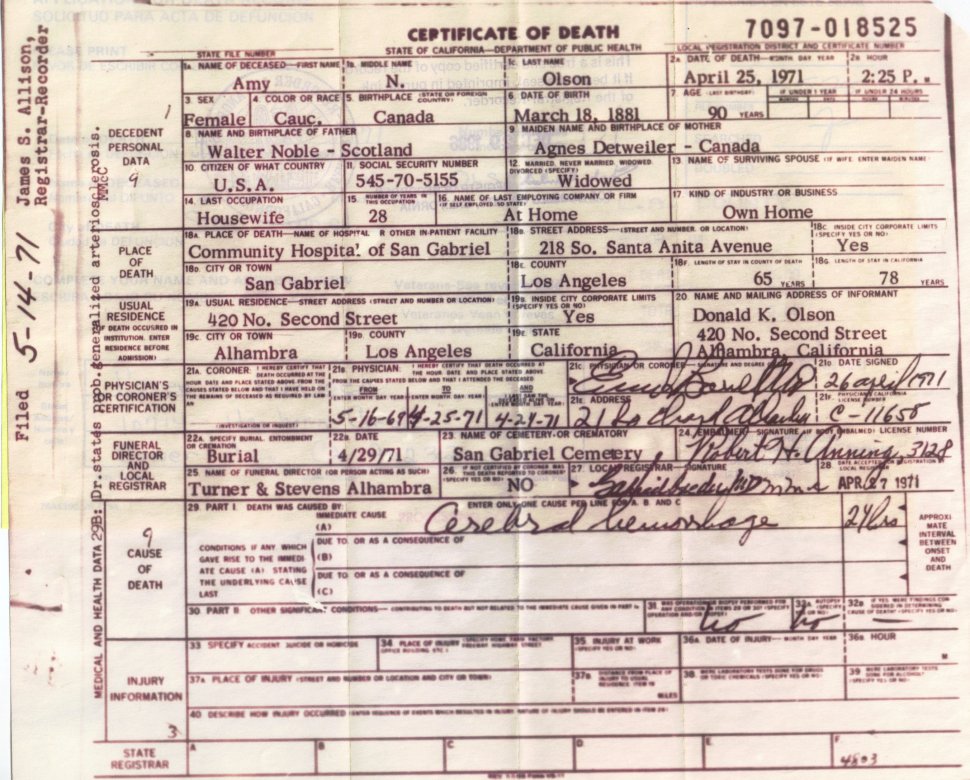 CERTIFICATE OF DEATH
STATE OF CALIFORNIA—DEPARTMENT OF PUBLIC HEALTH
7097-018525
STATE FILE NUMBER
LOCAL REGISTRATION DISTRICT AND CERTIFICATE NUMBER
Filed 5-14-71 James S. Allison,
Registrar-Recorder
MEDICAL AND HEALTH DATA 29B: Dr. states prob. generalized arteriosclerosis. MMcC
DECEDENT PERSONAL DATA
1A. NAME OF DECEASED—FIRST NAME
Amy
1B. MIDDLE NAME
N.
1C. LAST NAME
Olson
2A. DATE OF DEATH—MONTH DAY YEAR
April 25, 1971
2B. HOUR
2:25 P. M
3. SEX
Female
4. COLOR OR RACE
Cauc.
5. BIRTHPLACE (STATE OR FOREIGN COUNTRY)
Canada
6. DATE OF BIRTH
March 18, 1881
7. AGE (LAST BIRTHDAY)
90 YEARS
IF UNDER 1 YEAR
IF UNDER 24 HOURS
8. NAME AND BIRTHPLACE OF FATHER
Walter Noble - Scotland
9. MAIDEN NAME AND BIRTHPLACE OF MOTHER
Agnes Detweiler - Canada
10. CITIZEN OF WHAT COUNTRY
U.S.A.
11. SOCIAL SECURITY NUMBER
545-70-5155
12. MARRIED, NEVER MARRIED, WIDOWED, DIVORCED (SPECIFY)
Widowed
13. NAME OF SURVIVING SPOUSE (IF WIFE, ENTER MAIDEN NAME)
14. LAST OCCUPATION
Housewife
15. NUMBER OF YEARS IN THIS OCCUPATION
28
16. NAME OF LAST EMPLOYING COMPANY OR FIRM (IF SELF EMPLOYED, SO STATE)
At Home
17. KIND OF INDUSTRY OR BUSINESS
Own Home
PLACE OF DEATH
18A. PLACE OF DEATH—NAME OF HOSPITAL R OTHER IN-PATIENT FACILITY
Community Hospital of San Gabriel
18B. STREET ADDRESS—(STREET AND NUMBER, OR LOCATION)
218 So. Santa Anita Avenue
18C. INSIDE CITY CORPORATE LIMITS (SPECIFY YES OR NO)
Yes
18D. CITY OR TOWN
San Gabriel
18E. COUNTY
Los Angeles
18F. LENGTH OF STAY IN COUNTY OF DEATH
65 YEARS
18G. LENGTH OF STAY IN CALIFORNIA
78 YEARS
USUAL RESIDENCE
(IF DEATH OCCURRED IN INSTITUTION, ENTER RESIDENCE BEFORE ADMISSION)
19A. USUAL RESIDENCE—STREET ADDRESS (STREET AND NUMBER OR LOCATION)
420 No. Second Street
19B. INSIDE CITY CORPORATE LIMITS (SPECIFY YES OR NO)
Yes
20. NAME AND MAILING ADDRESS OF INFORMANT
Donald K. Olson
420 No. Second Street
Alhambra, California
19C. CITY OR TOWN
Alhambra
19D. COUNTY
Los Angeles
19E. STATE
California
PHYSICIAN'S OR CORONER'S CERTIFICATION
21A. CORONER: I HEREBY CERTIFY THAT DEATH OCCURRED AT THE HOUR DATE AND PLACE STATED ABOVE FROM THE CAUSES STATED BELOW AND THAT I HAVE HELD ON THE REMAINS OF DECEASED AS REQUIRED BY LAW AN
(INVESTIGATION OR INQUEST)
21B. PHYSICIAN: I HEREBY CERTIFY THAT DEATH OCCURRED AT THE HOUR DATE AND PLACE STATED ABOVE FROM THE CAUSES STATED BELOW AND THAT I ATTENDED THE DECEASED
5-16-69 4-25-71 4-24-71
21C. PHYSICIAN OR CORONER—SIGNATURE AND DEGREE OR TITLE
21D. DATE SIGNED
26 april 1971
21E. ADDRESS
21F. PHYSICIAN'S CALIFORNIA LICENSE NUMBER
C-11658
FUNERAL DIRECTOR AND LOCAL REGISTRAR
22A. SPECIFY BURIAL, ENTOMBMENT OR CREMATION
Burial
22B. DATE
4/29/71
23. NAME OF CEMETERY OR CREMATORY
San Gabriel Cemetery
24. EMBALMER—SIGNATURE (IF BODY EMBALMED) LICENSE NUMBER
Robert H. Anning 3128
25. NAME OF FUNERAL DIRECTOR (OR PERSON ACTING AS SUCH)
Turner & Stevens Alhambra
26. IF NOT CERTIFIED BY CORONER WAS THIS DEATH REPORTED TO CORONER? (SPECIFY YES OR NO)
NO
27. LOCAL REGISTRAR—SIGNATURE
28. DATE ACCEPTED FOR REGISTRATION BY LOCAL REGISTRAR
APR 27 1971
9
CAUSE OF DEATH
29. PART I. DEATH WAS CAUSED BY:
ENTER ONLY ONE CAUSE PER LINE FOR A, B, AND C
IMMEDIATE CAUSE
(A) Cerebral hemorrhage
24 hrs
APPROXIMATE INTERVAL BETWEEN ONSET AND DEATH
CONDITIONS IF ANY, WHICH GAVE RISE TO THE IMMEDIATE CAUSE (A) STATING THE UNDERLYING CAUSE LAST
DUE TO, OR AS A CONSEQUENCE OF
(B)
DUE TO, OR AS A CONSEQUENCE OF
(C)
30. PART II OTHER SIGNIFICANT CONDITIONS— CONTRIBUTING TO DEATH BUT NOT RELATED TO THE IMMEDIATE CAUSE GIVEN IN PART I
31. WAS OPERATION OR BIOPSY PERFORMED FOR ANY CONDITION IN ITEMS 29 OR 30? (SPECIFY OPERATION AND/OR BIOPSY)
no
32A. AUTOPSY (SPECIFY YES OR NO)
no
32B. IF YES, WERE FINDINGS CONSIDERED IN DETERMINING CAUSE OF DEATH? (SPECIFY YES OR NO)
—
INJURY INFORMATION
3
33. SPECIFY ACCIDENT SUICIDE OR HOMICIDE
34. PLACE OF INJURY
35. INJURY AT WORK (SPECIFY YES OR NO)
36A. DATE OF INJURY—MONTH DAY YEAR
36B. HOUR
M
37A. PLACE OF INJURY (STREET AND NUMBER OR LOCATION AND CITY OR TOWN)
37B. DISTANCE FROM PLACE OF INJURY TO USUAL RESIDENCE
MILES
38. WERE LABORATORY TESTS DONE FOR DRUGS OR TOXIC CHEMICALS (SPECIFY YES OR NO)
39. WERE LABORATORY TESTS DONE FOR ALCOHOL? (SPECIFY YES OR NO)
40. DESCRIBE HOW INJURY OCCURRED (ENTER SEQUENCE OF EVENTS WHICH RESULTED IN INJURY. NATURE OF INJURY SHOULD BE ENTERED IN ITEM 29)
STATE REGISTRAR
A. B. C. D. E. F.
4803